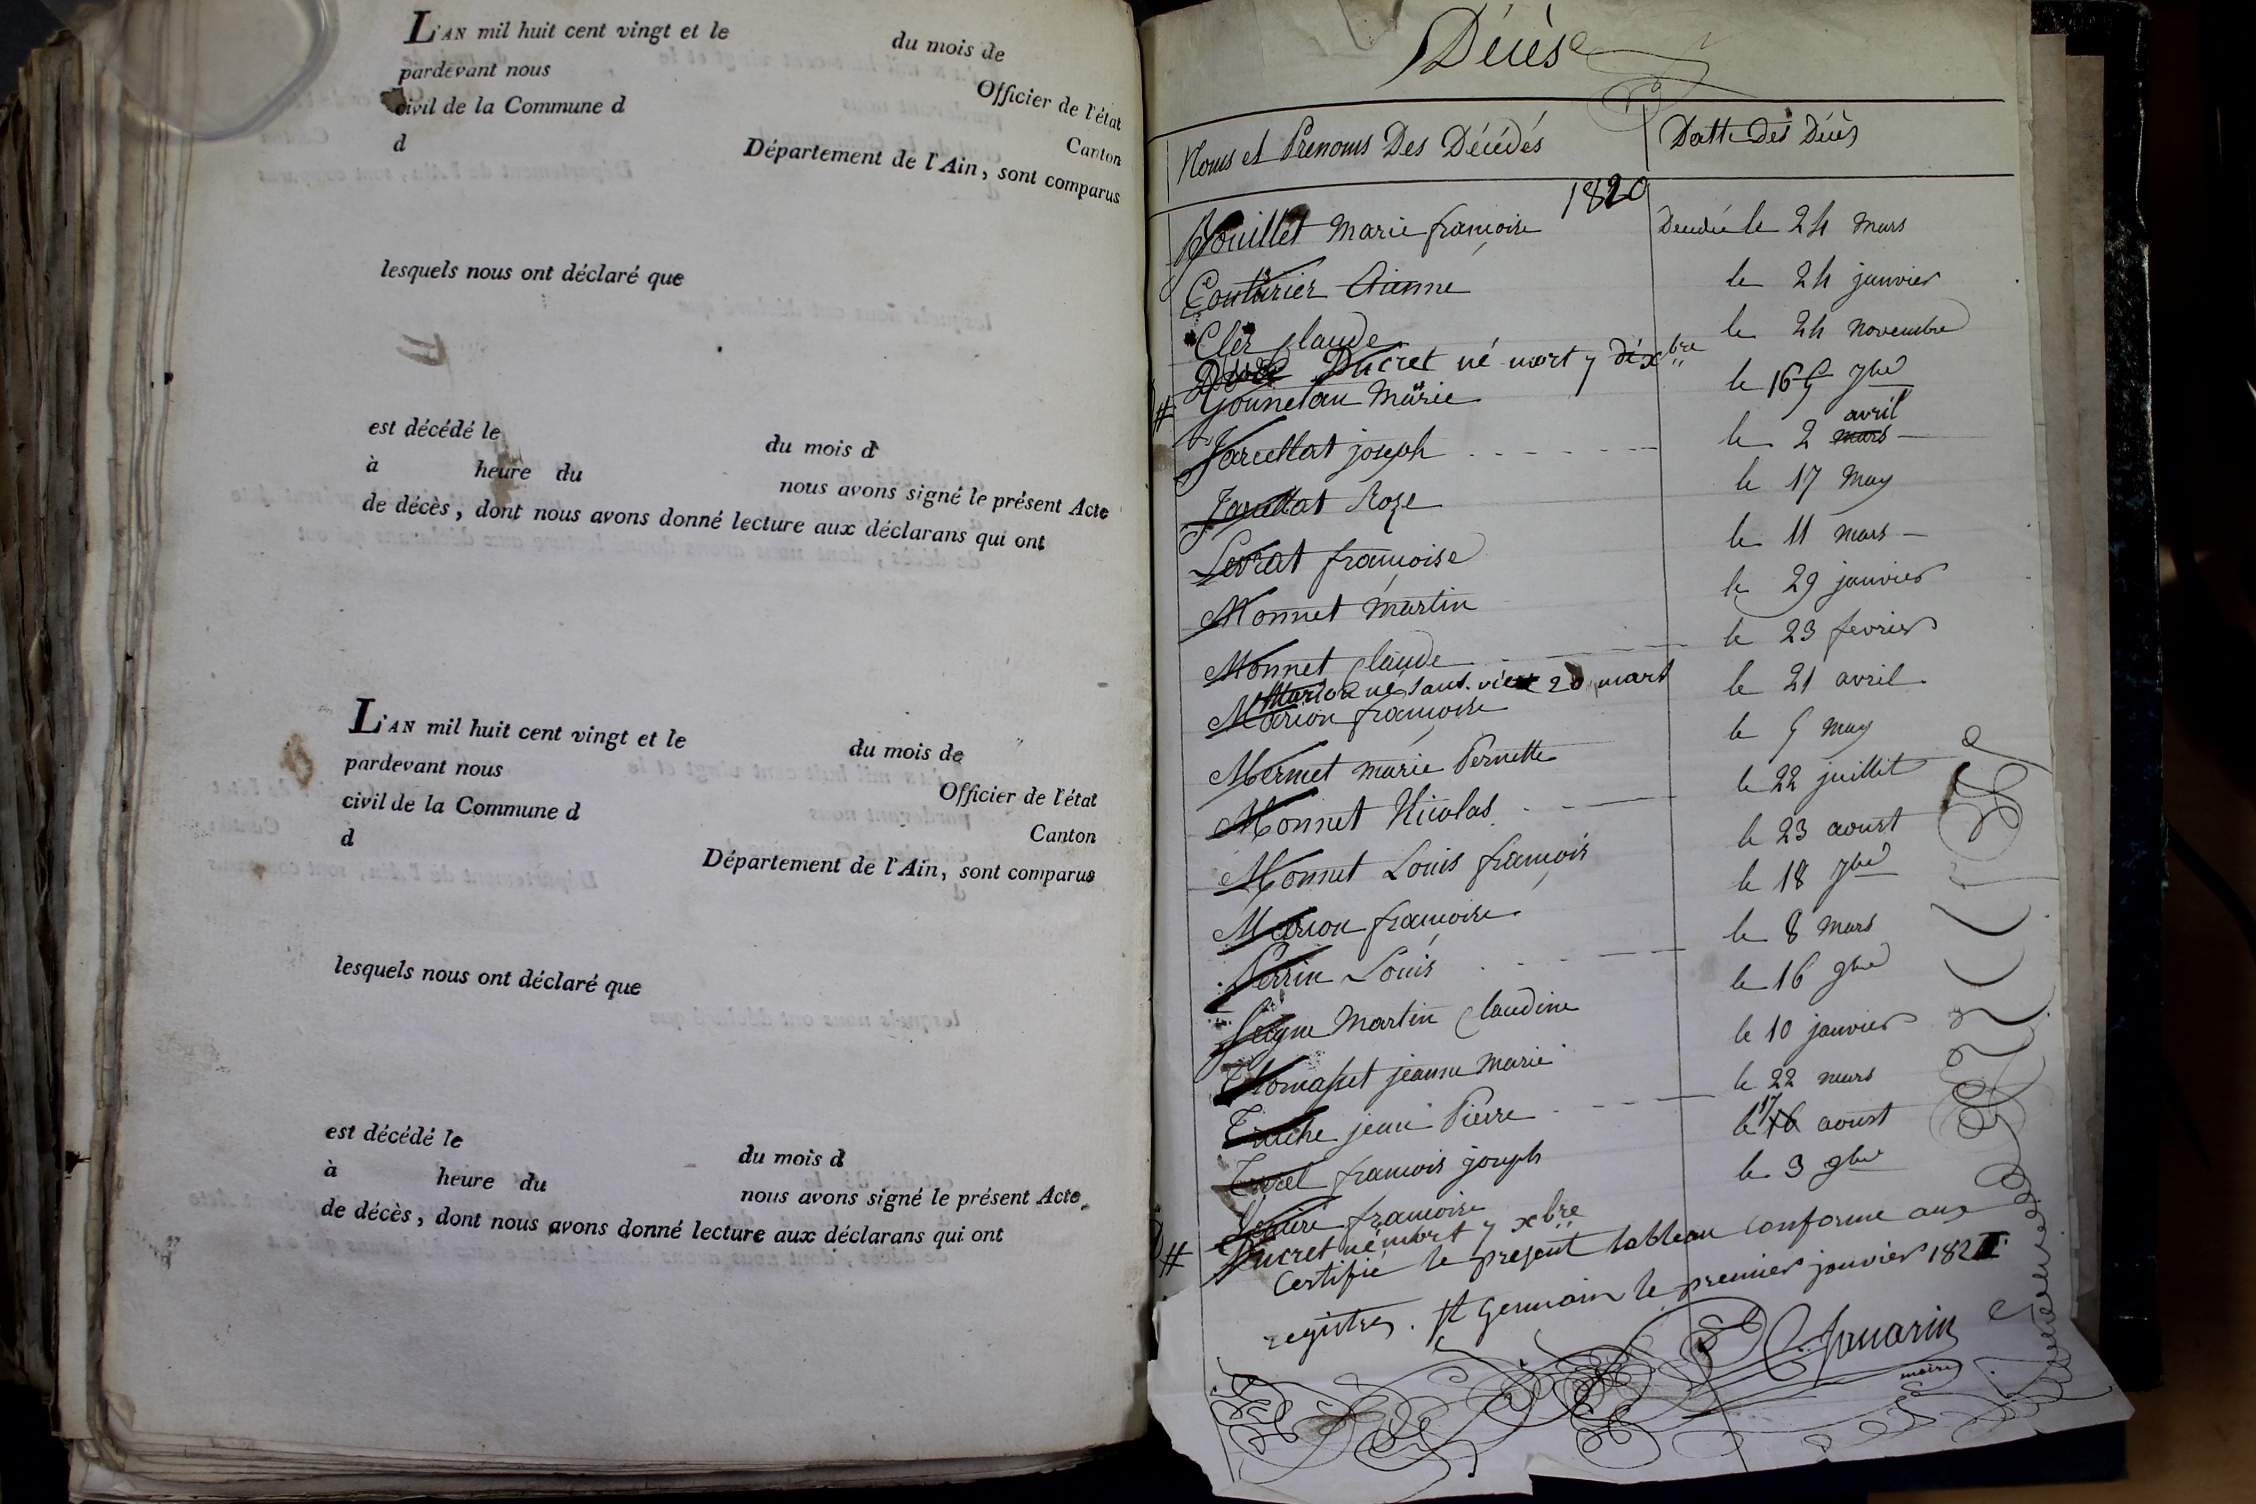 L'AN mil huit cent vingt et le du mois de
pardevant nous Officier de l'état
civil de la Commune d Canton
d Département de l'Ain, sont comparus
lesquels nous ont déclaré que
est décédé le du mois d
à heure du nous avons signé le présent Acte
de décès, dont nous avons donné lecture aux déclarans qui ont
L'AN mil huit cent vingt et le du mois de
pardevant nous Officier de l'état
civil de la Commune d Canton
d Département de l'Ain, sont comparus
lesquels nous ont déclaré que
est décédé le du mois d
à heure du nous avons signé le présent Acte
de décès, dont nous avons donné lecture aux déclarans qui ont
Décès
Noms et Prenoms Des Décédés Datte Des Décès
1820
Bouillet Marie françoise Décédée le 24 mars
Couturier Etienne le 24 janvier
Cler Claude le 24 novembre
Ducret né mort 7 déxbre
# Gounelau Marie le 16 7bre
Jarcellat joseph le 2 mars avril
Jarcellat Roze le 17 may
Levrat françoise le 11 mars
Monnet Martin le 29 janvier
Monnet Claude le 23 fevrier
Marion né sans vie 20 mars
Marion françoise le 21 avril
Mermet marie Pernette le 5 may
Monnet Nicolas le 22 juillet
Monnet Louis françois le 23 aoust
Marion françoise le 18 7bre
Perrin Louis le 8 mars
Seigne Martin Claudine le 16 9bre
Thomasset jeanne Marie le 10 janvier
Truche jean Pierre le 22 mars
françois joseph le 17 aoust
françoise le 3 9bre
# Ducret né mort 7 xbre
Certifié le present tableau conforme aux
registres. St Germain le premier janvier 1821
Janarin
maire